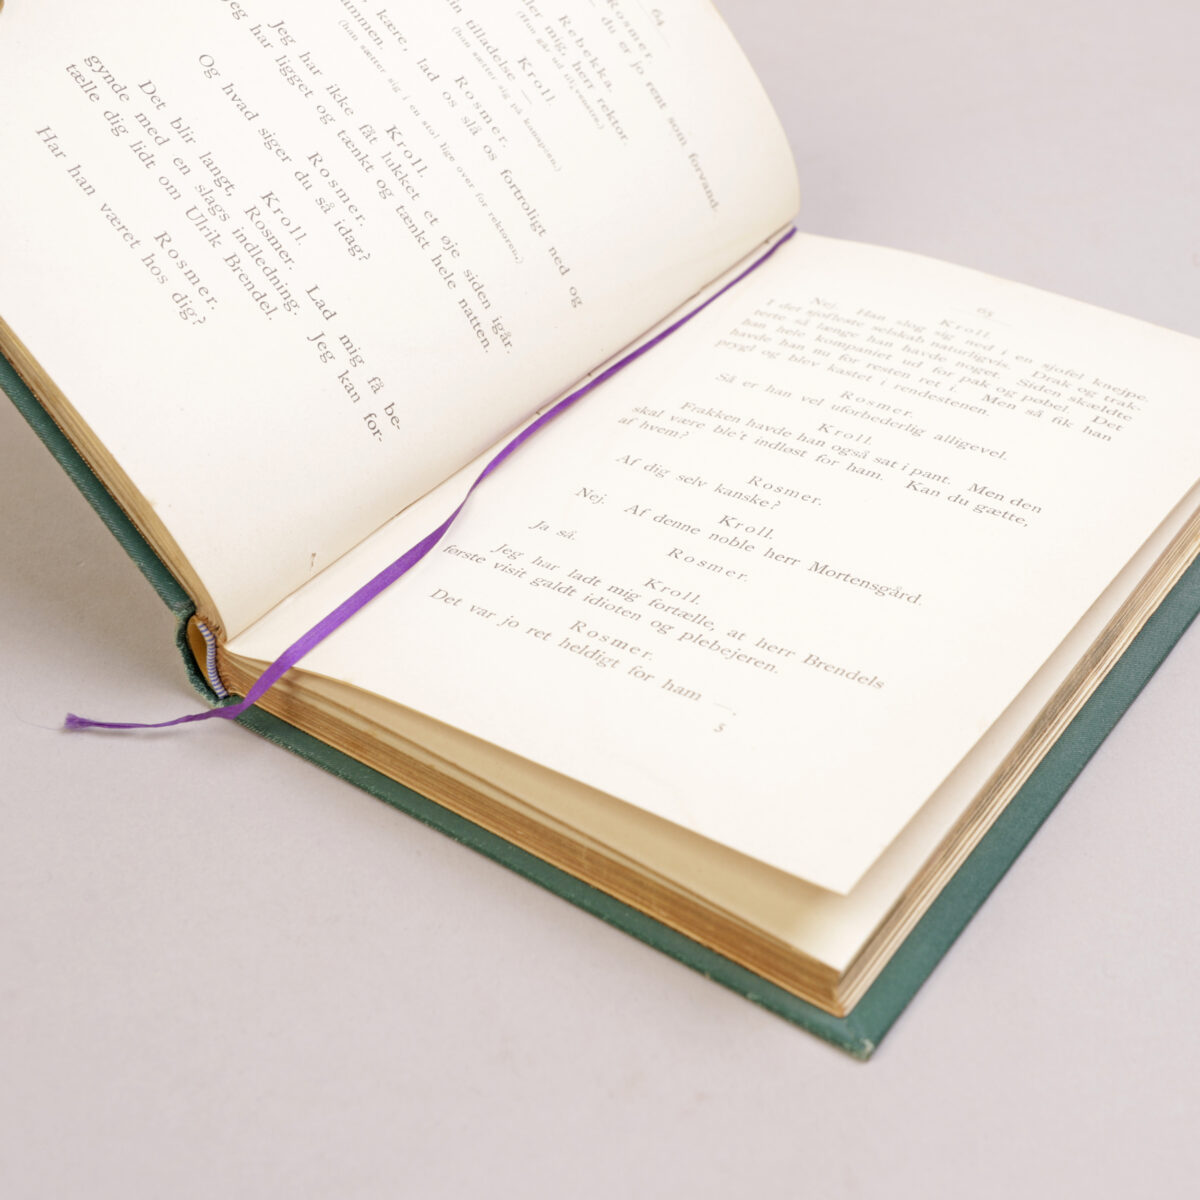 64
Rosmer
du er jo rent som forvand.
Rebekka.
ler mig, herr rektor.
(Hun går ud til venstre.)
Kroll.
in tilladelse —
(han sætter sig på kanapéen.)
Rosmer.
, kære, lad os slå os fortroligt ned og
ammen.
(han sætter sig i en stol lige over for rektoren.)
Kroll.
Jeg har ikke fåt lukket et øje siden igår.
jeg har ligget og tænkt og tænkt hele natten.
Rosmer.
Og hvad siger du så idag?
Kroll.
Det blir langt, Rosmer. Lad mig få be-
gynde med en slags indledning. Jeg kan for-
tælle dig lidt om Ulrik Brendel.
Rosmer.
Har han været hos dig?
65
Kroll.
Nej. Han slog sig ned i en sjofel knejpe.
I det sjofleste selskab naturligvis. Drak og trak-
terte så længe han havde noget. Siden skældte
han hele kompaniet ud for pak og pøbel. Det
havde han nu for resten ret i. Men så fik han
prygl og blev kastet i rendestenen.
Rosmer.
Så er han vel uforbederlig alligevel.
Kroll.
Frakken havde han også sat i pant. Men den
skal være ble't indløst for ham. Kan du gætte,
af hvem?
Rosmer.
Af dig selv kanske?
Kroll.
Nej. Af denne noble herr Mortensgård.
Rosmer.
Ja så.
Kroll.
Jeg har ladt mig fortælle, at herr Brendels
første visit galdt idioten og plebejeren.
Rosmer.
Det var jo ret heldigt for ham —.
5